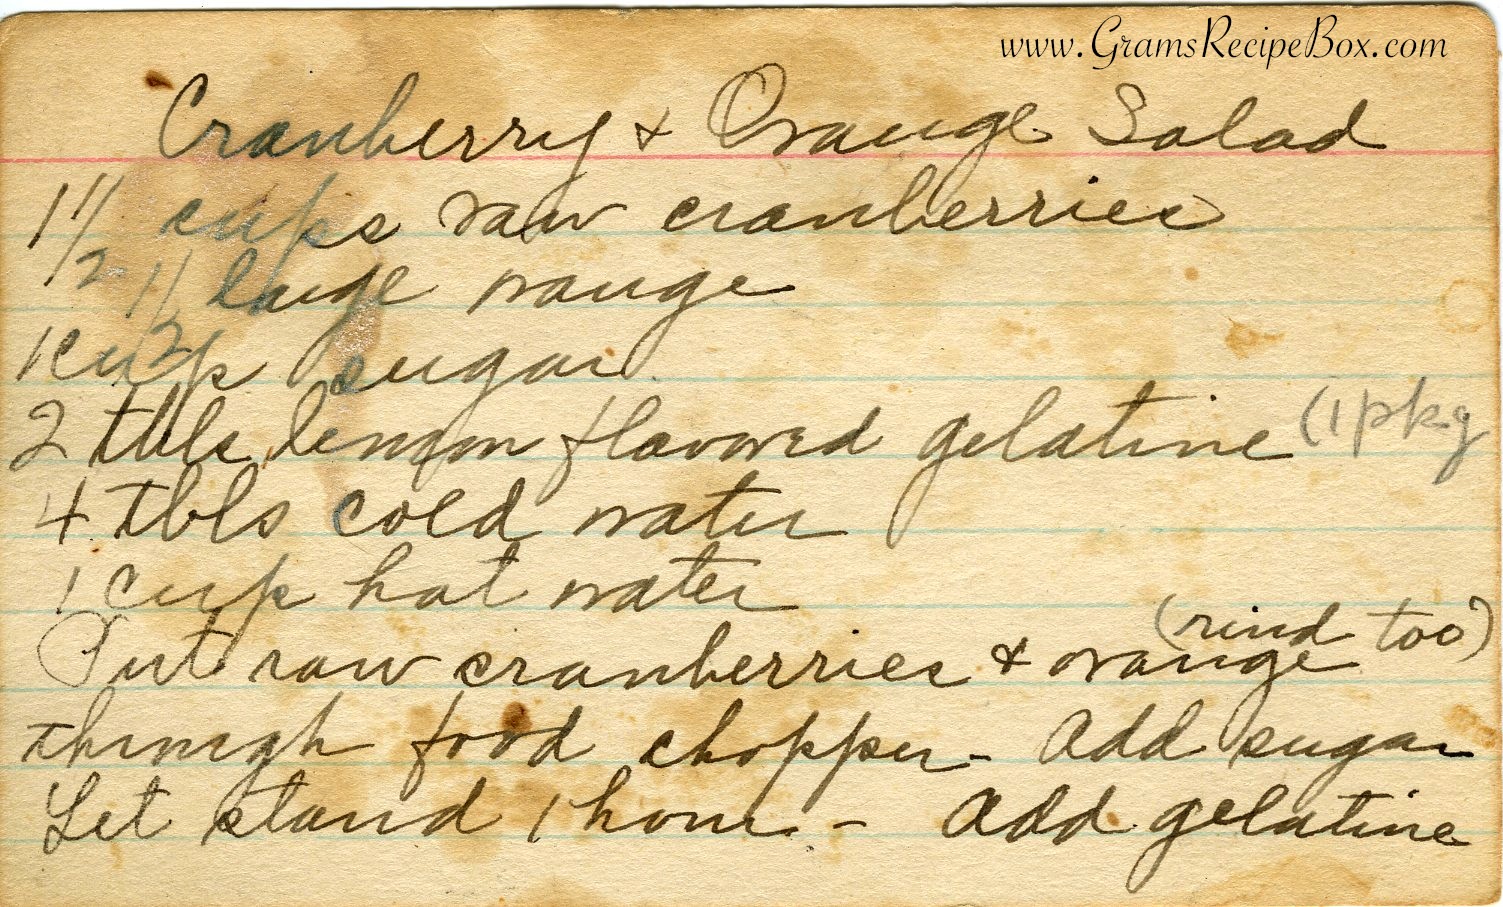 www.GramsRecipeBox.com
Cranberry & Orange Salad
1 1/2 cups raw cranberries
1/2 large orange
1 cup sugar
2 tbls lemon flavored gelatine (1 pkg
4 tbls cold water
1 cup hot water
(rind too)
Put raw cranberries & orange
through food chopper - Add sugar
Let stand 1 hour - Add gelatine